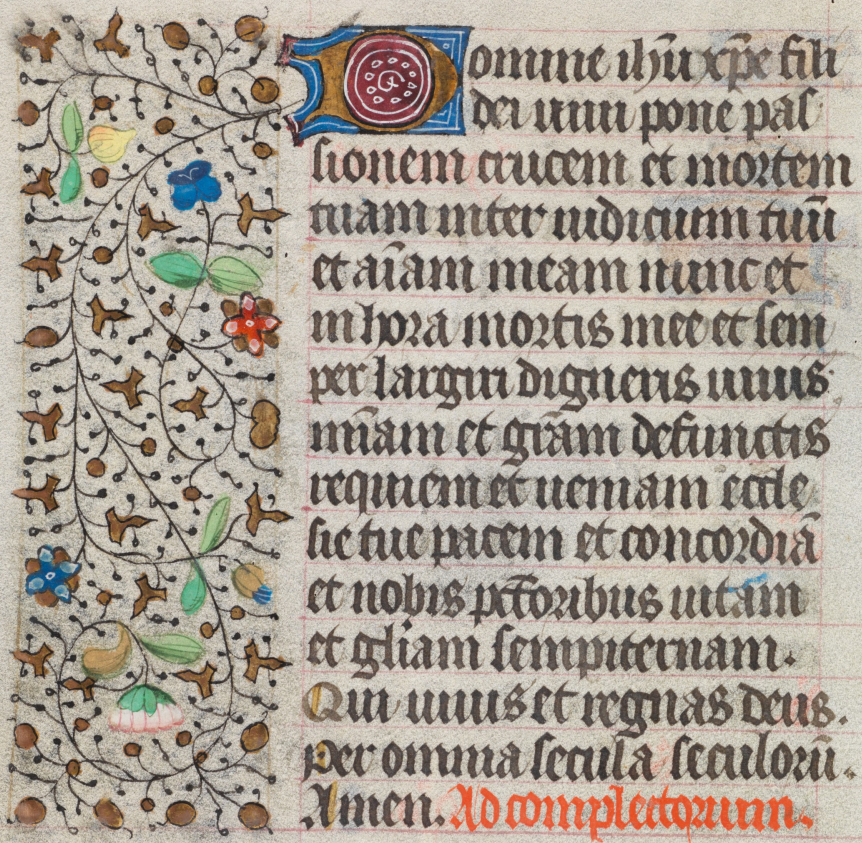 Domine ihū xp̄e fili
dei uiui pone pas
sionem crucem et mortem
tuam inter iudicium tuū
et aīam meam nunc et
in hora mortis mee et sem
per largiri digneris uiuis
mīam et grām defunctis
requiem et ueniam eccle
sie tue pacem et concordiā
et nobis pctōribus uitam
et gliam sempiternam.
Qui uiuis et regnas deus.
per omnia secula seculorū.
Amen. Ad completorium.